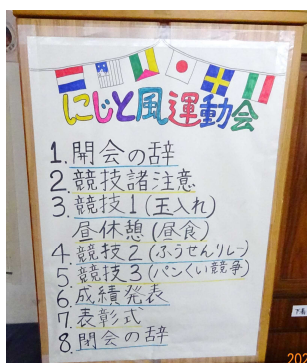 にじと風運動会
1.開会の辞
2.競技諸注意
3.競技1(玉入れ)
昼休憩(昼食)
4.競技2(ふうせんリレー)
5.競技3(パンくい競争)
6.成績発表
7.表彰式
8.閉会の辞
202